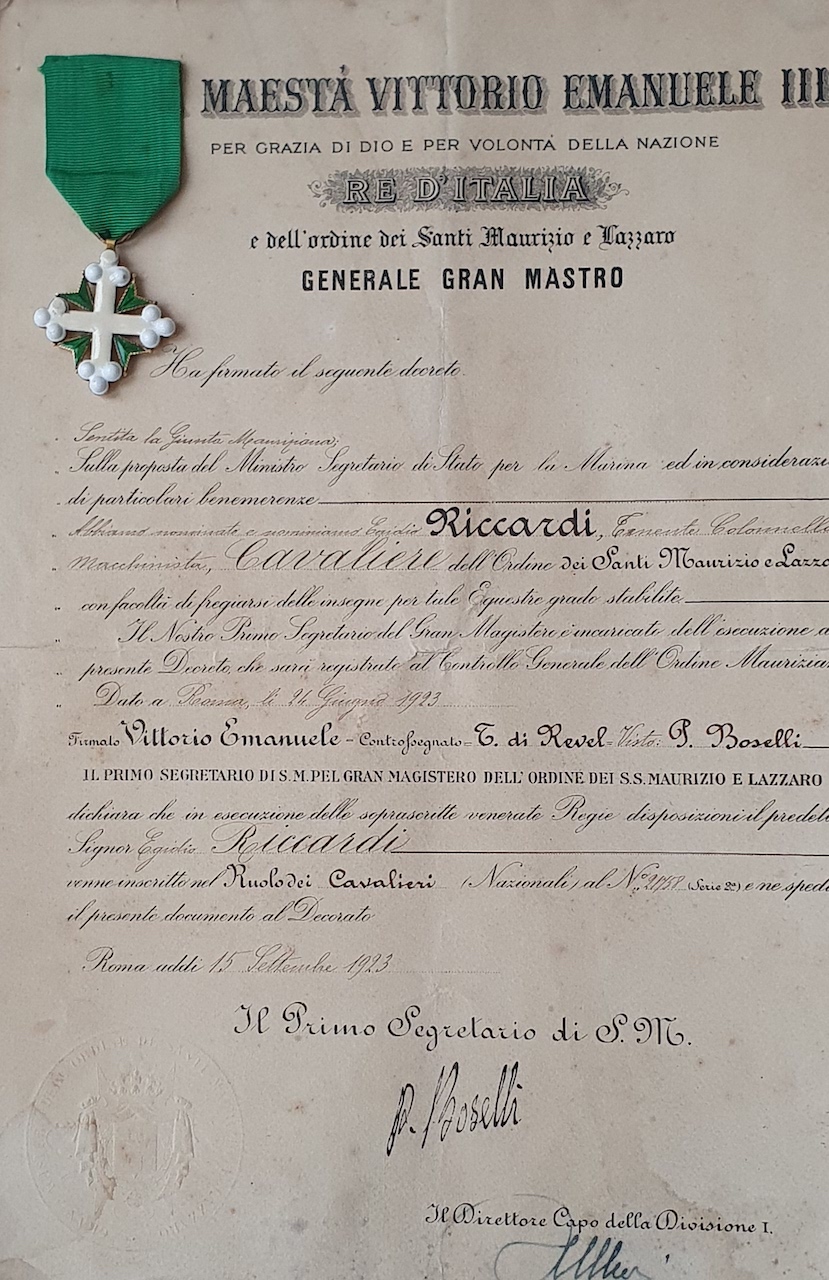 MAESTÁ VITTORIO EMANUELE III
PER GRAZIA DI DIO E PER VOLONTÁ DELLA NAZIONE
RE D'ITALIA
e dell'ordine dei Santi Maurizio e Lazzaro
GENERALE GRAN MASTRO
Ha firmato il seguente decreto.
Sentita la Giunta Mauriziana;
Sulla proposta del Ministro Segretario di Stato per la Marina ed in considerazi
di particolari benemerenze
Abbiamo nominato e nominiamo Egidio Riccardi, Tenente Colonnello
Macchinista, Cavaliere dell'Ordine dei Santi Maurizio e Lazza
con facoltà di fregiarsi delle insegne per tale Equestre grado stabilite.
Il Nostro Primo Segretario del Gran Magistero è incaricato dell'esecuzione d
presente Decreto, che sarà registrato al Controllo Generale dell'Ordine Maurizian
Dato a Roma, li 24 Giugno 1923
Firmato Vittorio Emanuele - Controssegnato = T. di Revel = Visto: P. Boselli
IL PRIMO SEGRETARIO DI S. M. PEL GRAN MAGISTERO DELL'ORDINE DEI S.S. MAURIZIO E LAZZARO
dichiara che in esecuzione delle soprascritte venerate Regie disposizioni il predett
Signor Egidio Riccardi
venne inscritto nel Ruolo dei Cavalieri (Nazionali) al N.º (Serie 2ª) e ne spedi
il presente documento al Decorato
Roma addì 15 Settembre 1923
Il Primo Segretario di S. M.
P. Boselli
Il Direttore Capo della Divisione I.